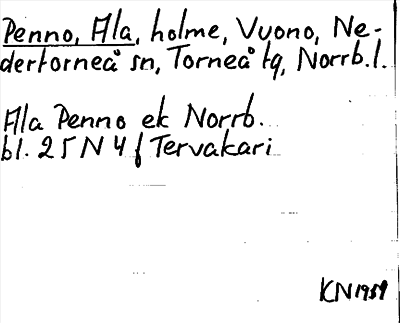 Penno, Ala, holme, Vuono, Ne-
dertorneå sn, Torneå tg, Norrb.l.
Ala Penno ek Norrb.
bl. 25 N 4 f Tervakari
KN 1959